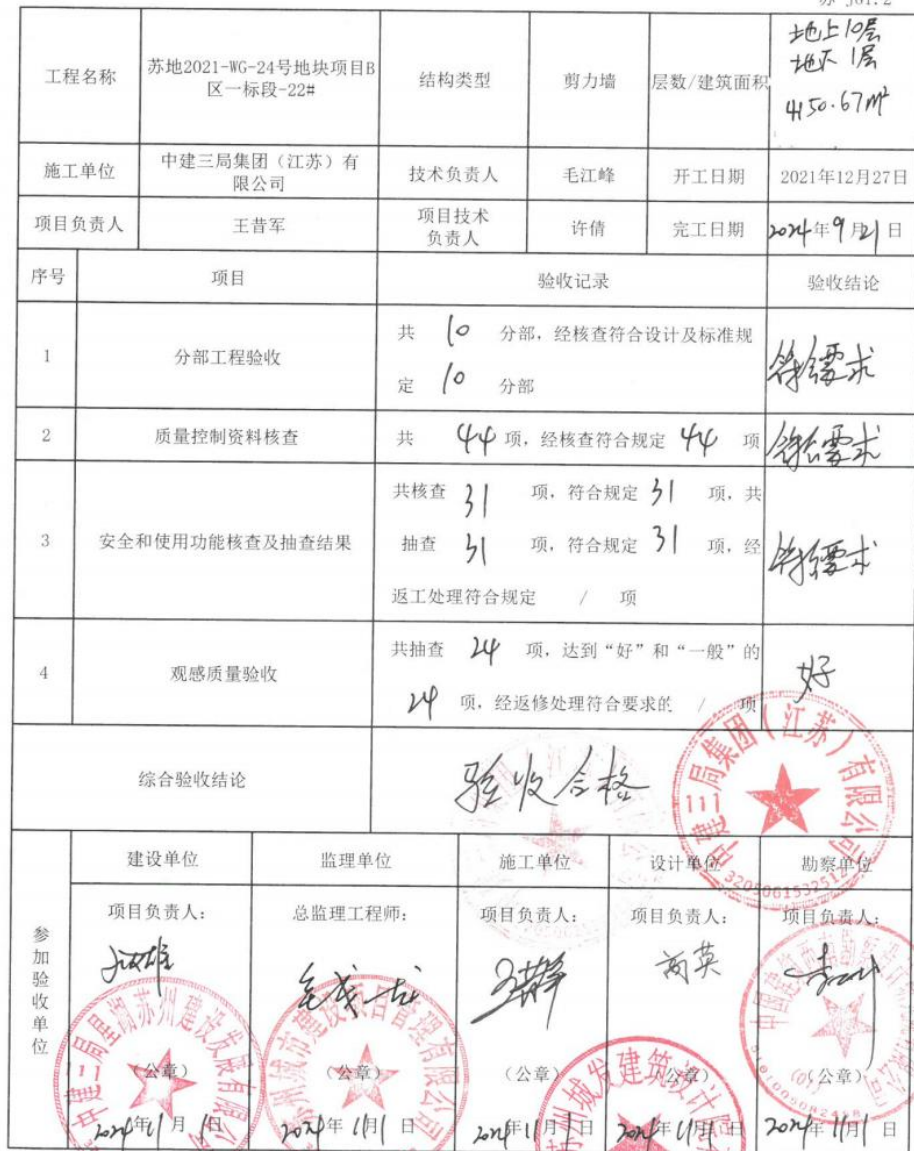 苏 J01.2
工程名称
苏地2021-WG-24号地块项目B
区一标段-22#
结构类型
剪力墙
层数/建筑面积
地上10层
地下1层
4150.67m²
施工单位
中建三局集团（江苏）有
限公司
技术负责人
毛江峰
开工日期
2021年12月27日
项目负责人
王昔军
项目技术
负责人
许倩
完工日期
2024年9月21日
序号
项目
验收记录
验收结论
1
分部工程验收
共 10 分部，经核查符合设计及标准规
定 10 分部
符合要求
2
质量控制资料核查
共 44 项，经核查符合规定 44 项
符合要求
3
安全和使用功能核查及抽查结果
共核查 31 项，符合规定 31 项，共
抽查 31 项，符合规定 31 项，经
返工处理符合规定 / 项
符合要求
4
观感质量验收
共抽查 24 项，达到“好”和“一般”的
24 项，经返修处理符合要求的 / 项
好
综合验收结论
验收合格
中建三局集团（江苏）有限公司
参加验收单位
建设单位
监理单位
施工单位
设计单位
勘察单位
项目负责人：
总监理工程师：
项目负责人：
项目负责人：
项目负责人：
（公章）
（公章）
（公章）
（公章）
（公章）
2024年11月1日
2024年11月1日
2024年11月1日
2024年11月1日
2024年11月1日